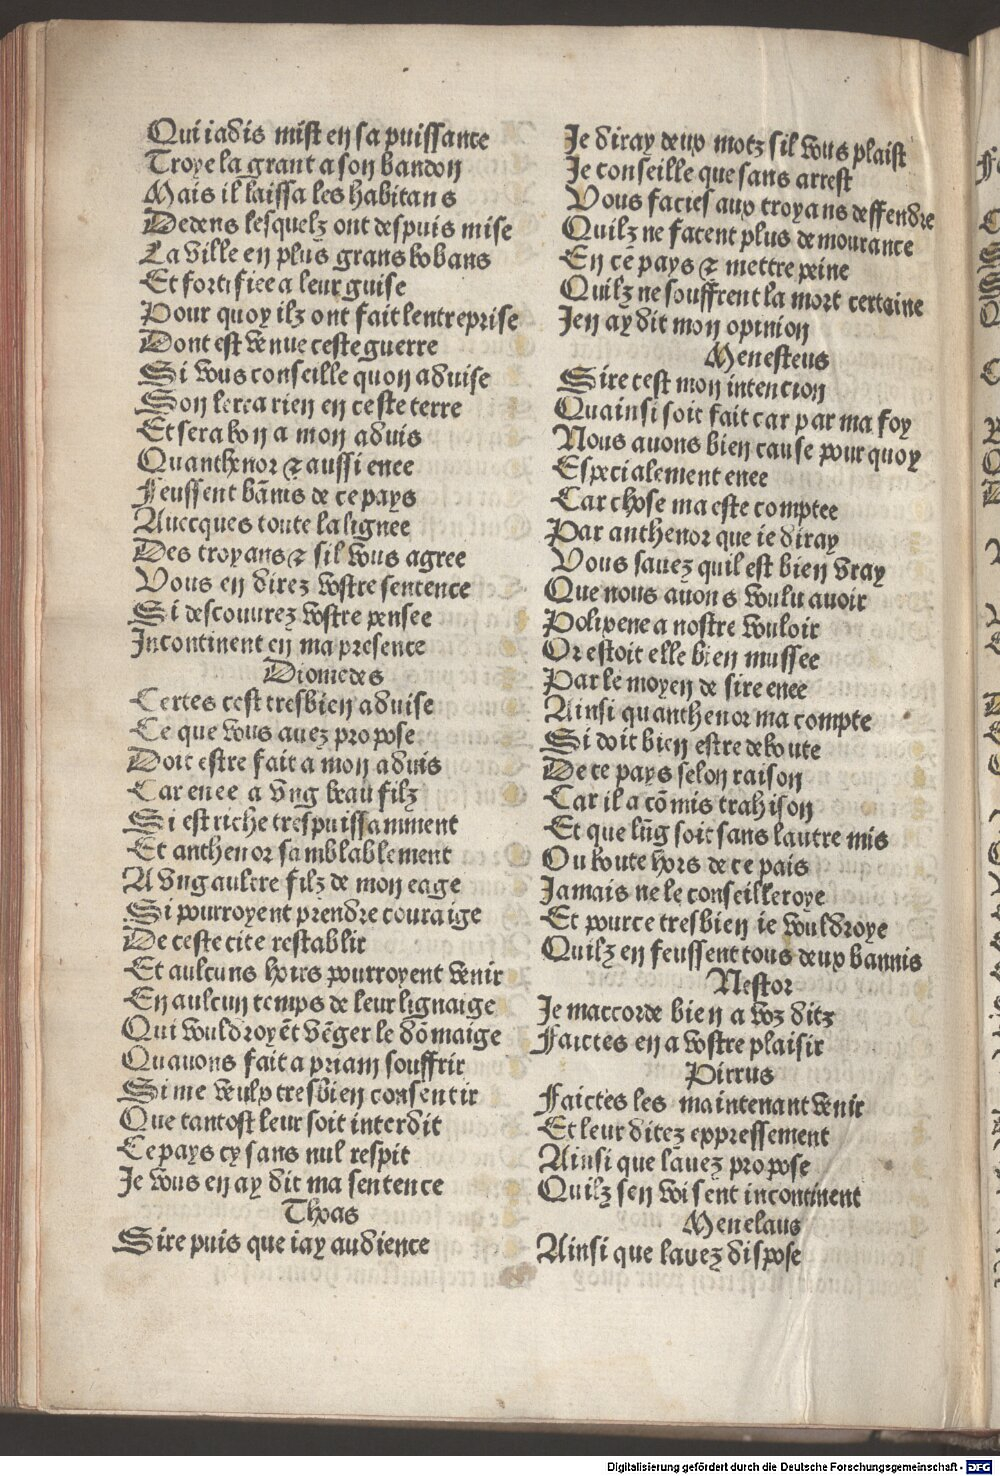 Qui iadis mist en sa puissance
Troye la grant a son bandon
Mais il laissa les habitans
Dedens lesquelz ont despuis mise
La ville en plus grans bobans
Et fortifiee a leur guise
Pour quoy ilz ont fait lentreprise
Dont est venue ceste guerre
Si vous conseille quon aduise
Son lerra rien en ceste terre
Et sera bon a mon aduis
Quanthenor ⁊ aussi enee
Feussent bānis de ce pays
Auecques toute la lignee
Des troyans ⁊ sil vous agree
Vous en direz vostre sentence
Si descouurez vostre pensee
Incontinent en ma presence
Diomedes
Certes cest tresbien aduise
Ce que vous auez propose
Doit estre fait a mon aduis
Car enee a vng beau filz
Si est riche trespuissamment
Et anthenor samblablement
A vng aultre filz de mon eage
Si pourroyent prendre couraige
De ceste cite restablir
Et aulcuns hoirs pourroyent venir
En aulcun temps de leur lignaige
Qui vouldroyēt vēger le dōmaige
Quauons fait a priam souffrir
Si me veulx tresbien consentir
Que tantost leur soit interdit
Ce pays cy sans nul respit
Je vous en ay dit ma sentence
Thoas
Sire puis que iay audience
Je diray deux motz sil vous plaist
Je conseille que sans arrest
Vous facies aux troyans deffendre
Quilz ne facent plus demourance
En ce pays ⁊ mettre peine
Quilz ne souffrent la mort certaine
Jen ay dit mon opinion
Menesteus
Sire cest mon intencion
Quainsi soit fait car par ma foy
Nous auons bien cause pour quoy
Especialement enee
Car chose ma este comptee
Par anthenor que ie diray
Vous sauez quil est bien vray
Que nous auons voulu auoir
Polixene a nostre vouloir
Or estoit elle bien mussee
Par le moyen de sire enee
Ainsi quanthenor ma compte
Si doit bien estre deboute
De ce pays selon raison
Car il a cōmis trahison
Et que lūg soit sans lautre mis
Ou boute hors de ce pais
Jamais ne le conseilleroye
Et pource tresbien ie vouldroye
Quilz en feussent tous deux bannis
Nestor
Je maccorde bien a voz ditz
Faictes en a vostre plaisir
Pirrus
Faictes les maintenant venir
Et leur ditez expressement
Ainsi que lauez propose
Quilz sen voisent incontinent
Menelaus
Ainsi que lauez dispose
Digitalisierung gefördert durch die Deutsche Forschungsgemeinschaft - DFG